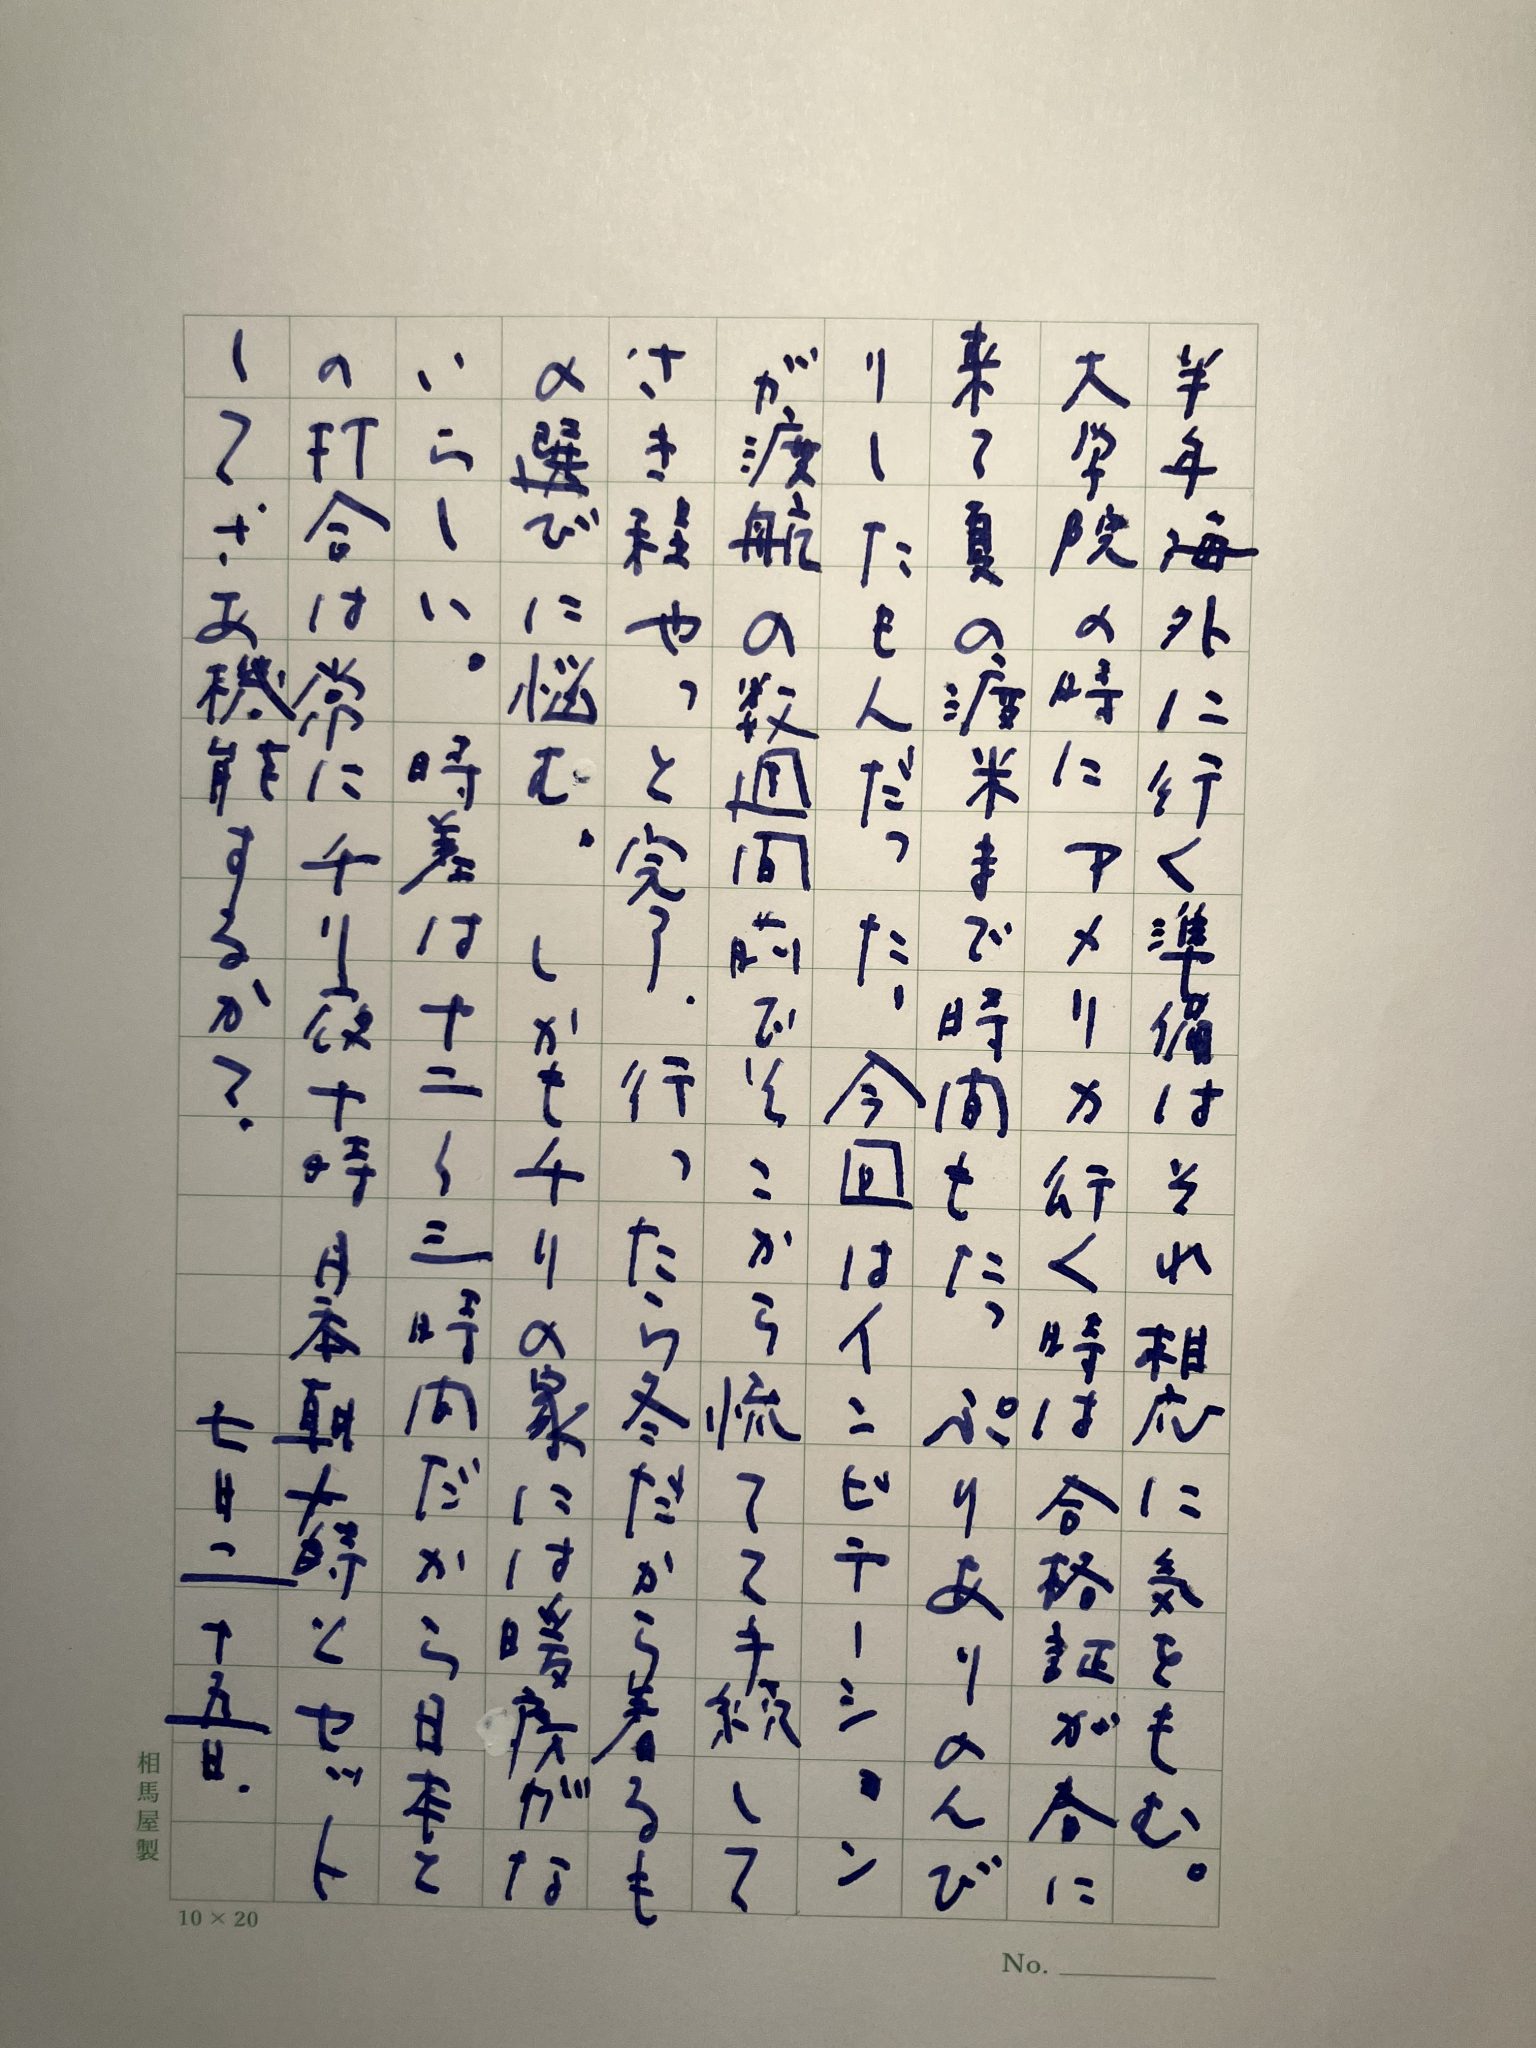 半年海外に行く準備はそれ相応に気をもむ。
大学院の時にアメリカ行く時は合格証が春に
来て夏の渡米まで時間もたっぷりありのんび
りしたもんだった。今回はインビテーション
が渡航の数週間前でそこから慌てて手続して
さき程やっと完了。行ったら冬だから着るも
の選びに悩む。しかもチリの家には暖房がな
いらしい。時差は十二〜三時間だから日本と
の打合は常にチリ夜十時日本朝十時とセット
してさあ機能するか?七月二十五日。
相馬屋製
10×20
No.